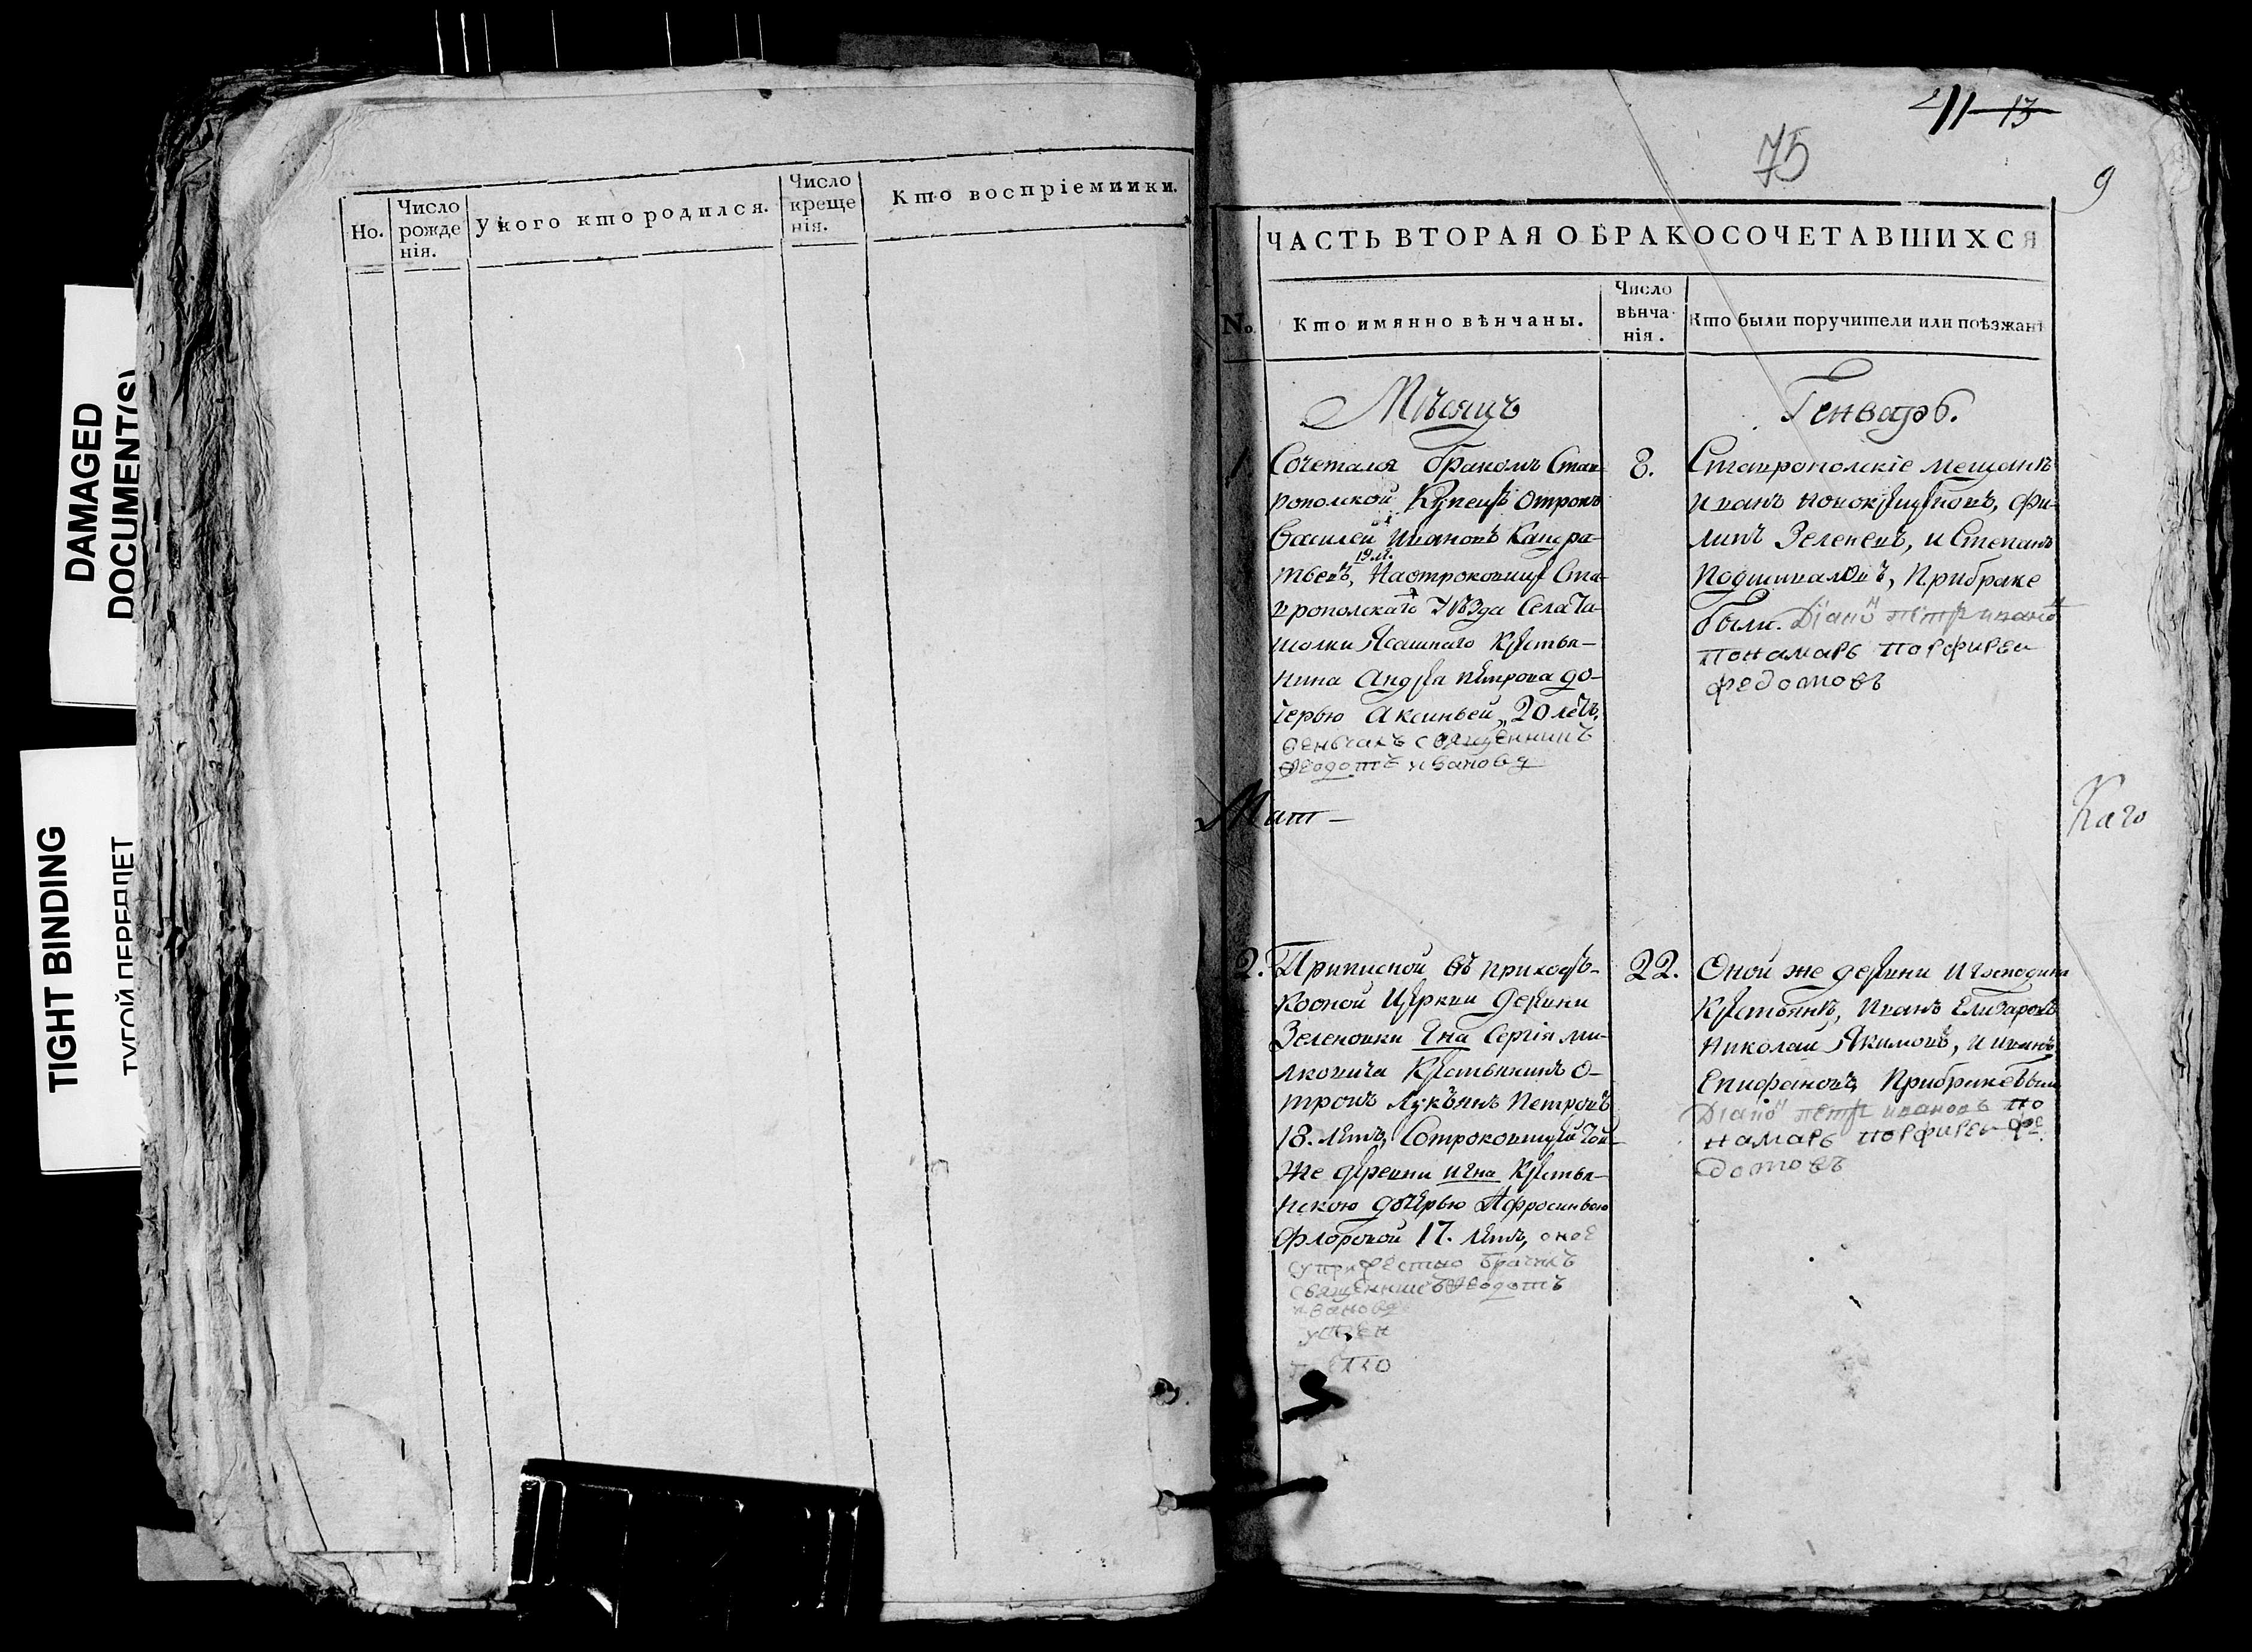 DAMAGED
DOCUMENT(S)
TIGHT BINDING
ТУГОЙ ПЕРЕПЛЕТ
Но.
Число
рожде
нія.
У кого кто родился.
Число
креще
нія.
Кто воспріемники.
13
75
9
ЧАСТЬ ВТОРАЯ О БРАКОСОЧЕТАВШИХСЯ
No.
Кто имянно вѣнчаны.
Число
вѣнча-
нія.
Кто были поручители или поѣзжанѣ
Мѣсяцъ
Генварь.
1
Сочетался бракомъ Став-
рополской Купецъ отрокъ
Василей Ивановъ Кандра-
тьевъ, 19 лѣ. На отроковице Ста-
врополскаго Уѣзда Села Ча-
шолки Ясашнаго Крестья-
нина Андрея Петрова до-
черью Аксиньей, 20 летъ,
веньчалъ священникъ
Феодотъ Ивановъ
8.
Ставрополскіе мещанѣ
Иванъ Новокрещеновъ, Фи-
липъ Зеленевъ, и Степанъ
Подшиваловъ, При браке
были. Діако тетръ иванов
понамарь порфиреи
федотовъ
Каго
2.
Приписной въ приходъ-
Церкви деревни
Зеленовки Г҃на Сергія Ми-
лковича Крестьянинъ о-
трокъ Лукъянъ Петровъ
18. летъ, Сотроковицей той
же деревни и г҃на Крестья-
нскою дочерью Афросиньею
Флоровой 17. летъ, оное
священникъ Феодотъ
ивановъ
22.
Оной же деревни и Господина
Крестьянѣ, Иванъ Елизаровъ
Николай Якимовъ, и иванъ
Епифановъ, При браке были
Діако петръ ивановъ по
намарь порфиреи фе
дотовъ